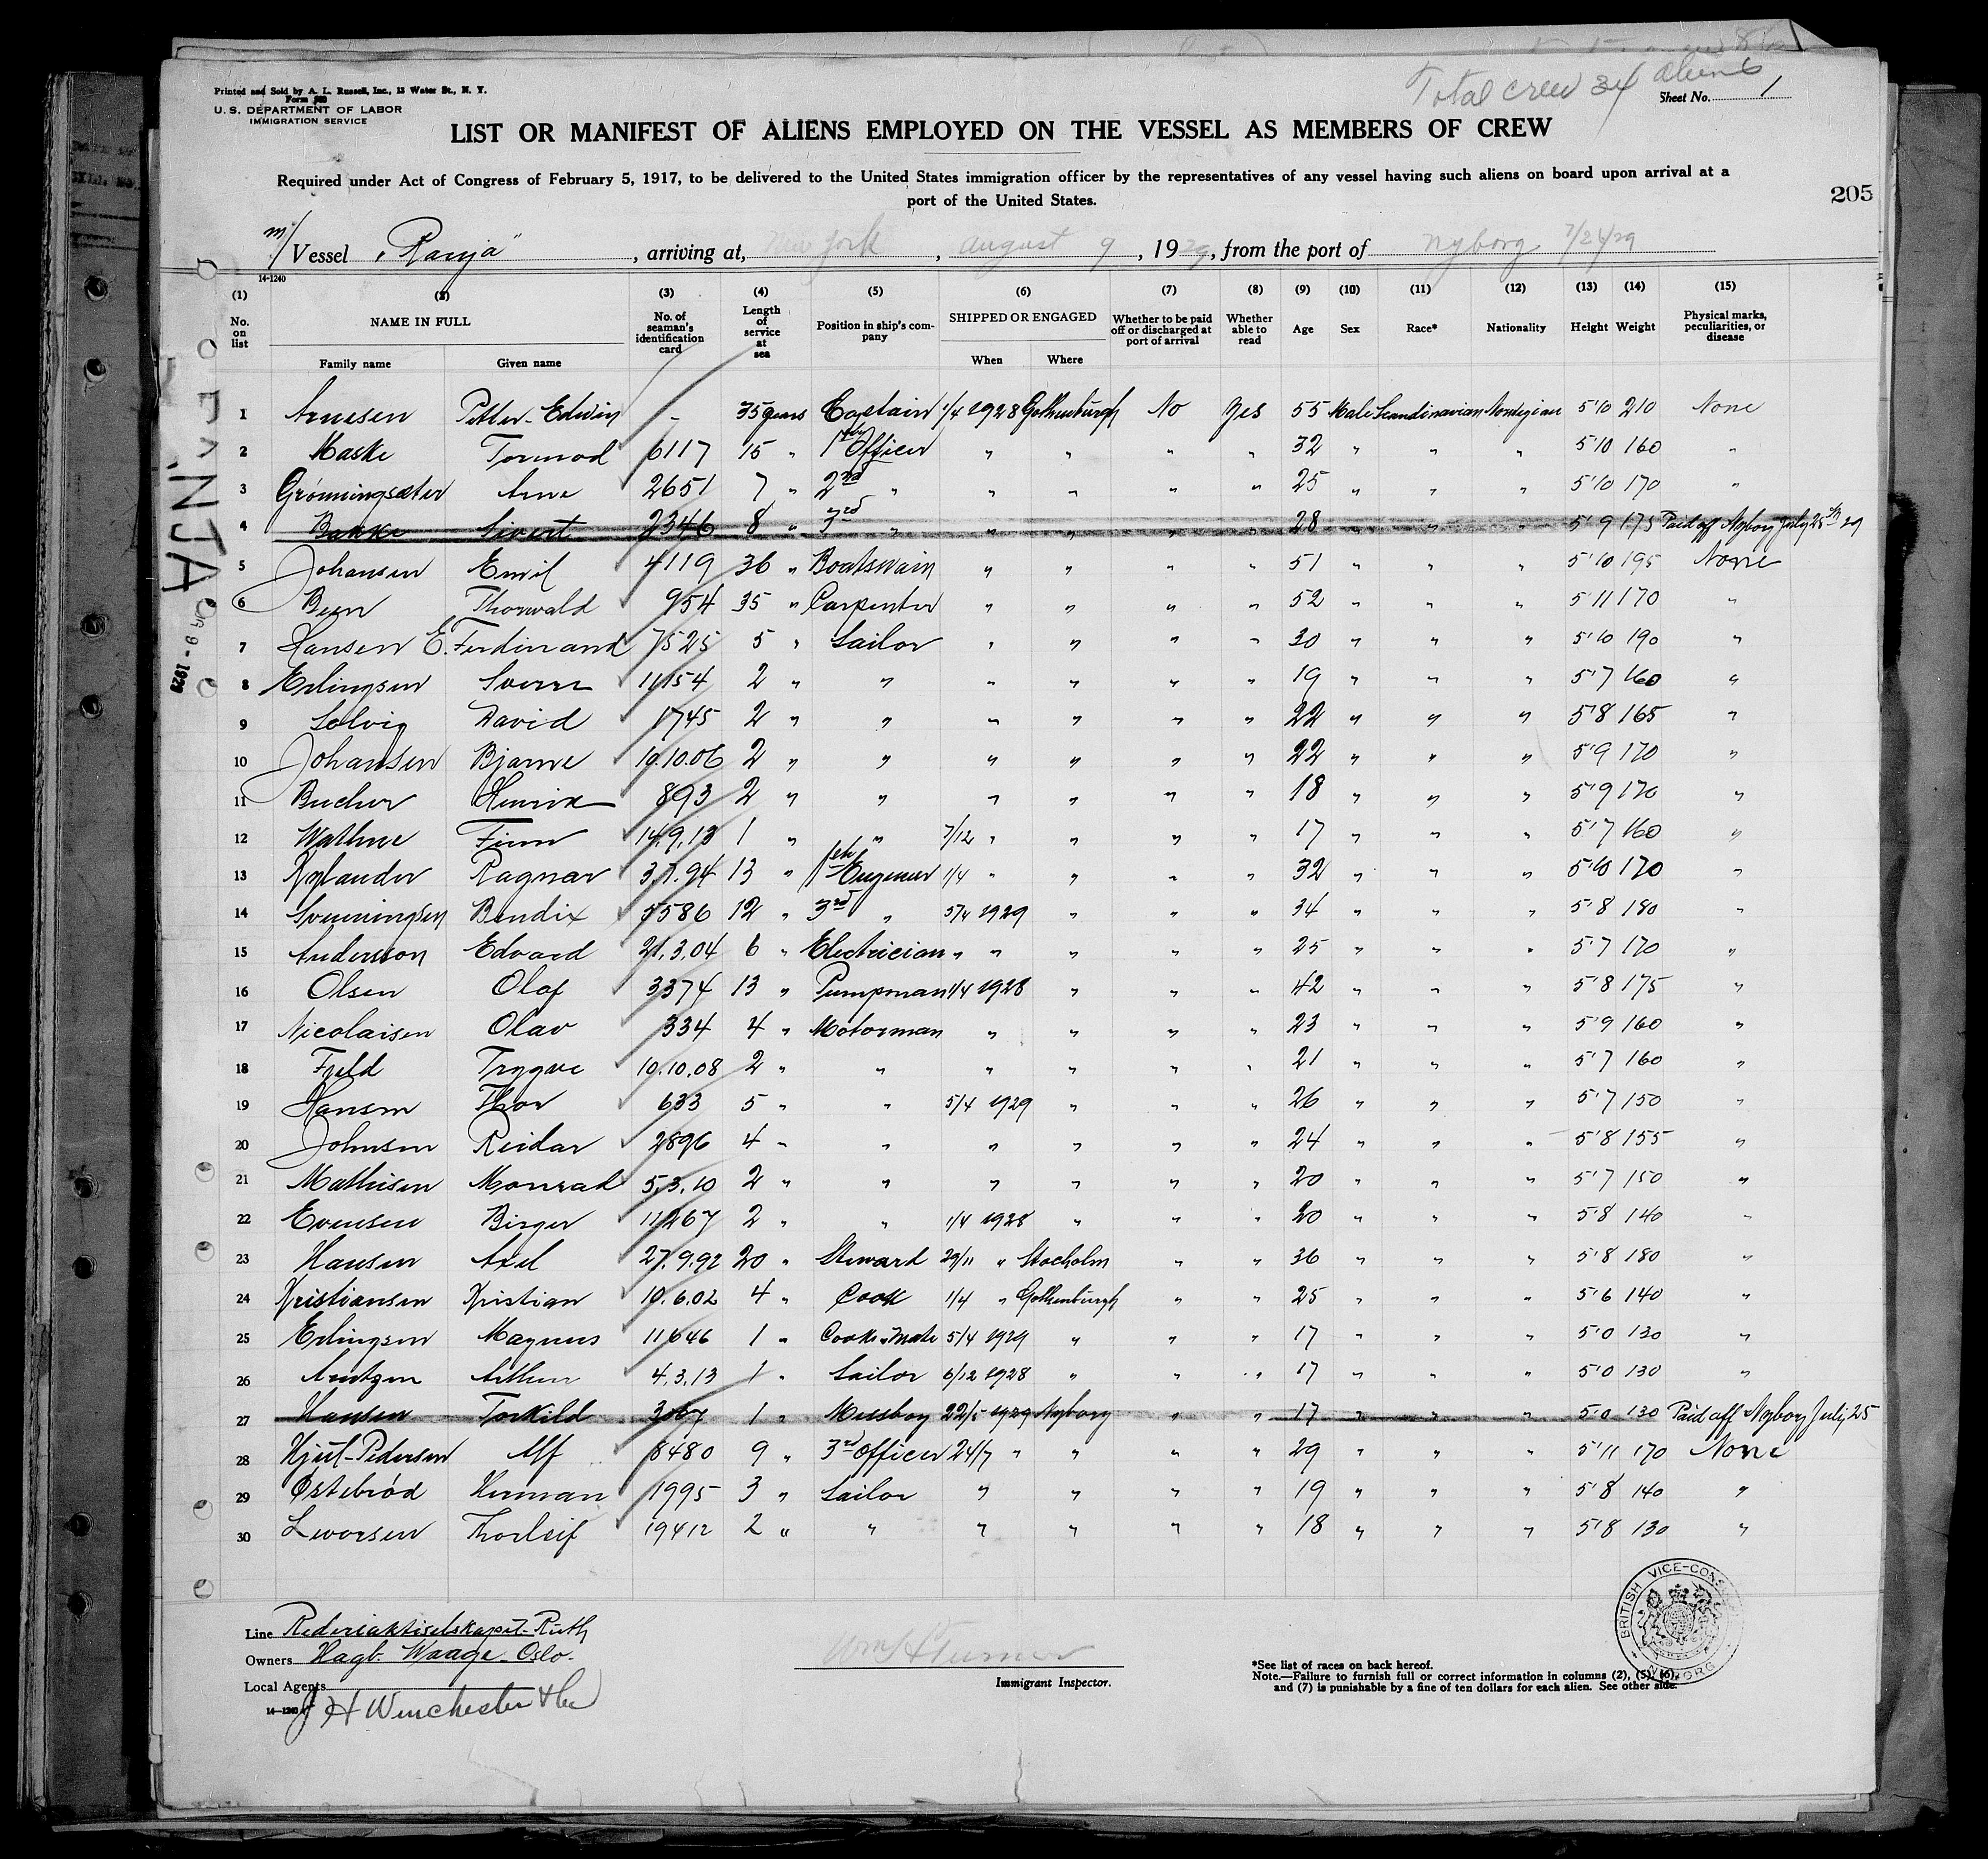 Total crew 34 aliens
Printed and Sold by A. L. Russell, Inc., 13 Water St., N. Y.
Form
U. S. DEPARTMENT OF LABOR
IMMIGRATION SERVICE
Sheet No. 1
LIST OR MANIFEST OF ALIENS EMPLOYED ON THE VESSEL AS MEMBERS OF CREW
Required under Act of Congress of February 5, 1917, to be delivered to the United States immigration officer by the representatives of any vessel having such aliens on board upon arrival at a
port of the United States.
205
m/ Vessel "Ranja", arriving at, New York, August 9, 1929, from the port of Nyborg 7/26/29
14-1240
(1) (2) (3) (4) (5) (6) (7) (8) (9) (10) (11) (12) (13) (14) (15)
No. on list NAME IN FULL Family name Given name No. of seaman's identification card Length of service at sea Position in ship's company SHIPPED OR ENGAGED When Where Whether to be paid off or discharged at port of arrival Whether able to read Age Sex Race* Nationality Height Weight Physical marks, peculiarities, or disease
1 Arnesen Petter Edwin - 35 years Captain 1/4 1928 Gothenburgh No Yes 55 Male Scandinavian Norwegian 5'10 210 None
2 Maske Tormod 6117 15 " 1st Officer " " " " 32 " " " 5'10 160 "
3 Grønningsæter Arne 2651 7 " 2nd " " " " " 25 " " " 5'10 170 "
4 Bakke Sivert 2346 8 " 3rd " " " " " 28 " " " 5'9 175 Paid off Nyborg July 25th 29
5 Johansen Emil 4119 36 " Boatswain " " " " 51 " " " 5'10 195 None
6 Thorwald 954 35 " Carpenter " " " " 52 " " " 5'11 170 "
7 Hansen E. Ferdinand 7525 5 " Sailor " " " " 30 " " " 5'10 190 "
8 Erlingsen Sverre 11154 2 " " " " " " 19 " " " 5'7 160 "
9 Solvig David 1745 2 " " " " " " 22 " " " 5'8 165 "
10 Johansen Bjarne 10.10.06 2 " " " " " " 22 " " " 5'9 170 "
11 Bucher Henrik 893 2 " " " " " " 18 " " " 5'9 170 "
12 Wathne Finn 14.9.13 1 " " 7/12 " " " " 17 " " " 5'7 160 "
13 Nylander Ragnar 3.7.94 13 " 1st Engineer 1/4 " " " " 32 " " " 5'10 170 "
14 Svenningsen Bendix 5586 12 " 3rd " 5/4 1929 " " " 34 " " " 5'8 180 "
15 Andersson Edvard 21.3.04 6 " Electrician " " " " " 25 " " " 5'7 170 "
16 Olsen Olaf 3374 13 " Pumpman 1/4 1928 " " " 42 " " " 5'8 175 "
17 Nicolaisen Olav 334 4 " Motorman " " " " 23 " " " 5'9 160 "
18 Fjeld Trygve 10.10.08 2 " " " " " " 21 " " " 5'7 160 "
19 Hansen Thor 633 5 " " 5/4 1929 " " " 26 " " " 5'7 150 "
20 Johnsen Reidar 2896 4 " " " " " " 24 " " " 5'8 155 "
21 Mathisen Monrad 5.3.10 2 " " " " " " 20 " " " 5'7 150 "
22 Evensen Birger 11267 2 " " 1/4 1928 " " " 20 " " " 5'8 140 "
23 Hansen Axel 27.9.92 20 " Steward 29/11 " Stocholm " " 36 " " " 5'8 180 "
24 Kristiansen Kristian 10.6.02 4 " Cook 1/4 " Gothenburgh " " 25 " " " 5'6 140 "
25 Erlingsen Magnus 11646 1 " Cooks Mate 5/4 1929 " " " 17 " " " 5'0 130 "
26 Arntzen Arthur 4.3.13 1 " Sailor 6/12 1928 " " " 17 " " " 5'0 130 "
27 Hansen Torkild 3067 1 " Messboy 22/5 1929 Nyborg " " 17 " " " 5'0 130 Paid off Nyborg July 25
28 Hjul-Pedersen Alf 8480 9 " 3rd Officer 24/7 " " " " 29 " " " 5'11 170 None
29 Østebrød Herman 1995 3 " Sailor " " " " 19 " " " 5'8 140 "
30 Leworsen Thorleif 19412 2 " " " " " " 18 " " " 5'8 130 "
RANJA
Aug 9 - 1929
Line Rederiaktieselskapet Ruth
Owners Hagb. Waage Oslo.
Local Agents
J H Winchester & Co
14-1240
Wm H Turner
Immigrant Inspector.
*See list of races on back hereof.
Note.—Failure to furnish full or correct information in columns (2), (5), (6),
and (7) is punishable by a fine of ten dollars for each alien. See other side.
BRITISH VICE-CONS
NYBORG